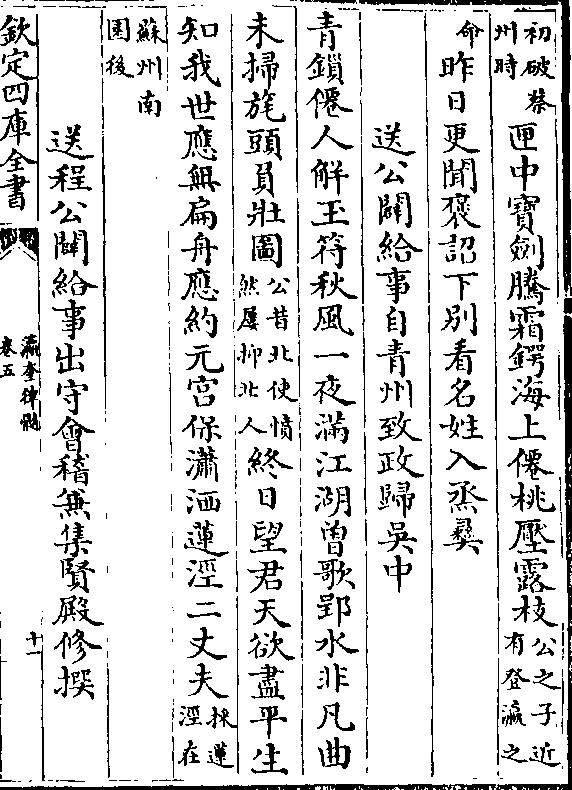 初破蔡州時匣中寶劍騰霜鍔海上僊桃壓露枝公之子近有登瀛之
命昨日更聞褒詔下別看名姓入烝彝
送公闢給事自青州致政歸吳中
青鎖僊人解玉符秋風一夜滿江湖曽歌郢水非凡曲
未掃旄頭負壯圖公昔北使憤然屢抑北人終日望君天欲盡平生
知我世應無扁舟應約元宫保瀟洒蓮涇二丈夫採蓮涇在
蘇州南園後
送程公闢給事出守會稽兼集賢殿修撰
欽定四庫全書
瀛奎律髓
卷五
十一